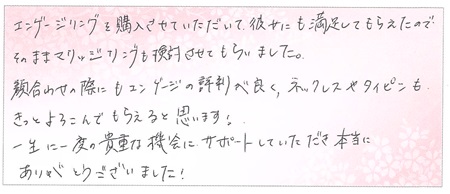 エンゲージリングを購入させていただいて、彼女にも満足してもらえたので
そのままマリッジリングも検討させてもらいました。
顔合わせの際にもエンゲージの評判が良く、ネックレスやタイピンも
きっとよろこんでもらえると思います!
一生に一度の貴重な機会にサポートしていただき本当に
ありがとうございました!